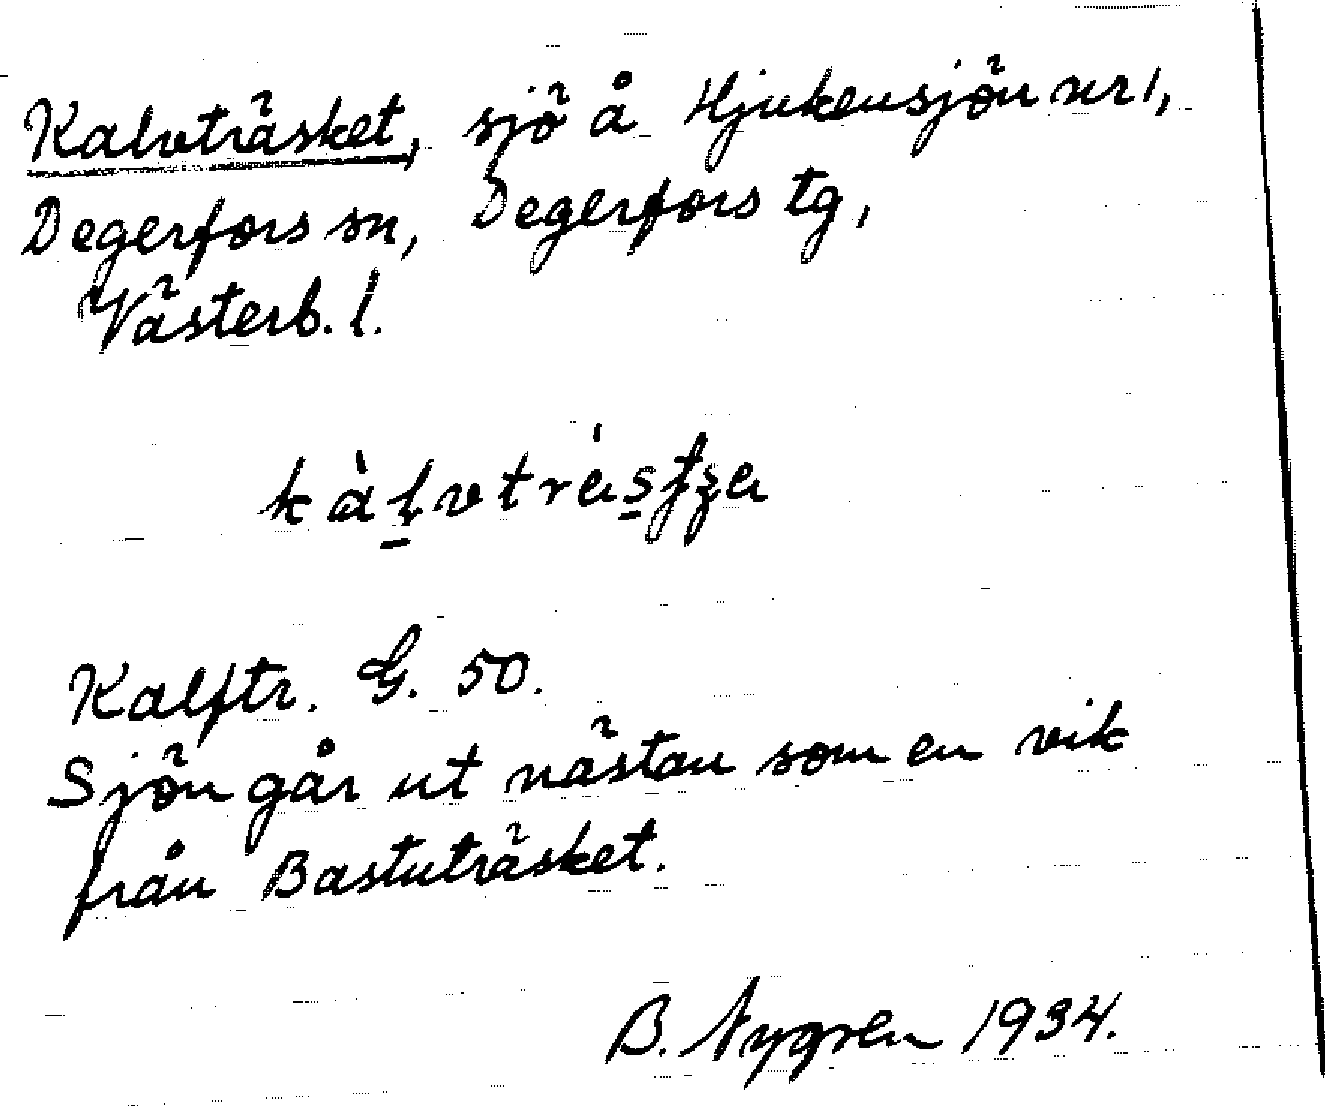 Kalvträsket, sjö å Hjukensjön nr 1,
Degerfors sn, Degerfors tg,
Västerb. l.
Kalftr. G. 50.
Sjön går ut nästan som en vik
från Bastuträsket.
B. Nygren 1934.